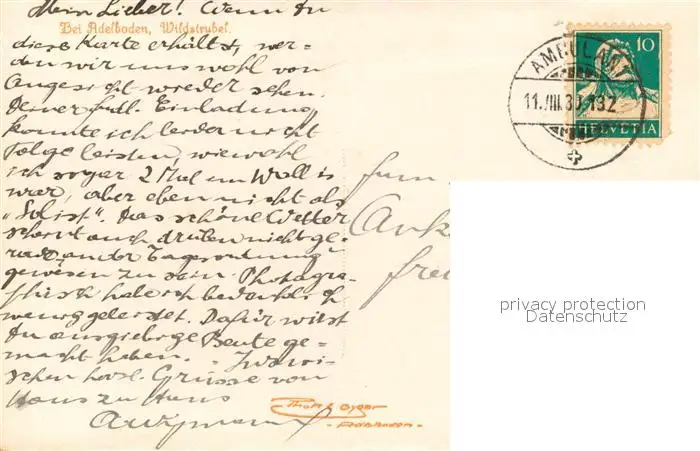 Mein Lieber! Wenn Du
Bei Adelboden, Wildstrubel.
diese Karte erhältst, wer-
den wir uns wohl von
Angesicht wieder sehen.
Deiner frdl. Einladung
konnte ich leider nicht
Folge leisten, wiewohl
ich sogar 2 Mal im Wallis
war, aber eben nicht als
„Solist". Das schöne Wetter
scheint auch drüben nicht ge-
rade an der Tagesordnung
gewesen zu sein. Photogra-
phisch habe ich bedenklich
wenig geleistet. Dafür wirst
Du ausgiebige Beute ge-
macht haben. - Inzwi-
schen herzl. Grüsse von
Haus zu Haus
zum
frei
10
HELVETIA
AMBULANT
11.VIII.30.-13 2
Photo Gyger
- Adelboden -
privacy protection
Datenschutz